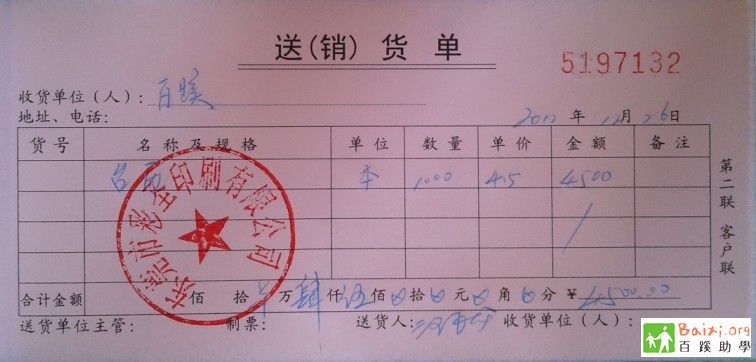 送(销)货单
5197132
收货单位(人): 百蹊
地址、电话: 2012年12月26日
货号 名称及规格 单位 数量 单价 金额 备注
台历 本 1000 4.5 4500
合计金额 佰 拾 万肆仟伍佰 拾 元 角 分 ¥4500.00
送货单位主管: 制票: 送货人: 收货单位(人):
第二联 客户联
东莞市彩宝印刷有限公司
Baixi.org
百蹊助學